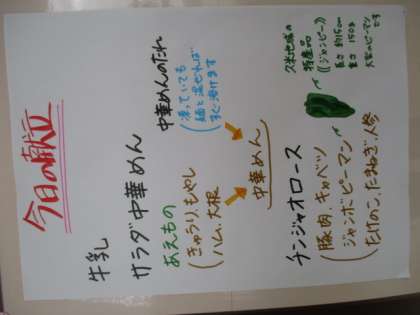 今日の献立
牛乳
サラダ中華めん
あえもの
きゅうり、もやし
ハム、大根
中華めんのたれ
凍っていても
麺と混ぜれば
すぐ溶けます
中華めん
チンジャオロース
豚肉、キャベツ
ジャンボピーマン
たけのこ、たまねぎ、人参
久米地域の
特産品
《ジャンピー》
長さ 約15cm
重さ 150g
大きいピーマン
です